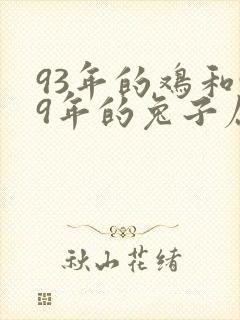 93年的鸡和
9年的兔子
秋山花绪